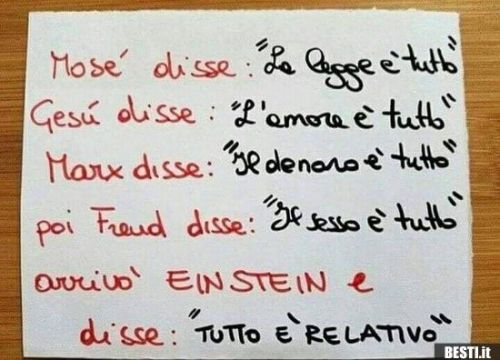 Mosé disse: "La legge è tutto"
Gesú disse: "L'amore è tutto"
Marx disse: "Il denaro è tutto"
poi Freud disse: "Il sesso è tutto"
arrivò EINSTEIN e
disse: "TUTTO E' RELATIVO"
BESTI.it